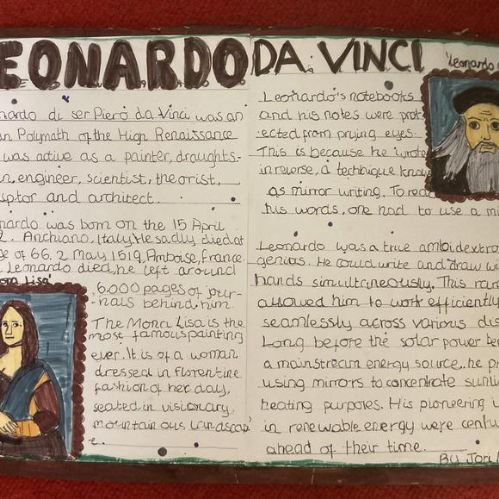 EONARDO DA VINCI
nardo di ser Piero da Vinci was an
n Polymath of the High Renaissance
was active as a painter, draughts-
n, engineer, scientist, theorist,
ulptor and architect.
nardo was born on the 15 April
2. Anchiano, Italy. He sadly died at
ge of 66, 2 May 1519, Amboise, France.
Leonardo died, he left around
6000 pages of jour-
nals behind him.
Mona Lisa'
The Mona Lisa is the
most famous painting
ever. It is of a woman
dressed in Florentine
fashion of her day,
seated in visionary,
mountainous landscap
e.
'Leonardo
Leonardo's notebooks
and his notes were prot
ected from prying eyes.
This is because he wrote
in reverse, a technique know
as mirror writing. To read
his words, one had to use a m
Leonardo was a true ambidextrou
genius. He could write and draw w
hands simultaneously. This rare
allowed him to work efficiently
seamlessly across various dis
Long before the solar power be
a mainstream energy source, he p
using mirrors to concentrate sunli
heating purposes. His pioneering
in renewable energy were centu
ahead of their time.
By